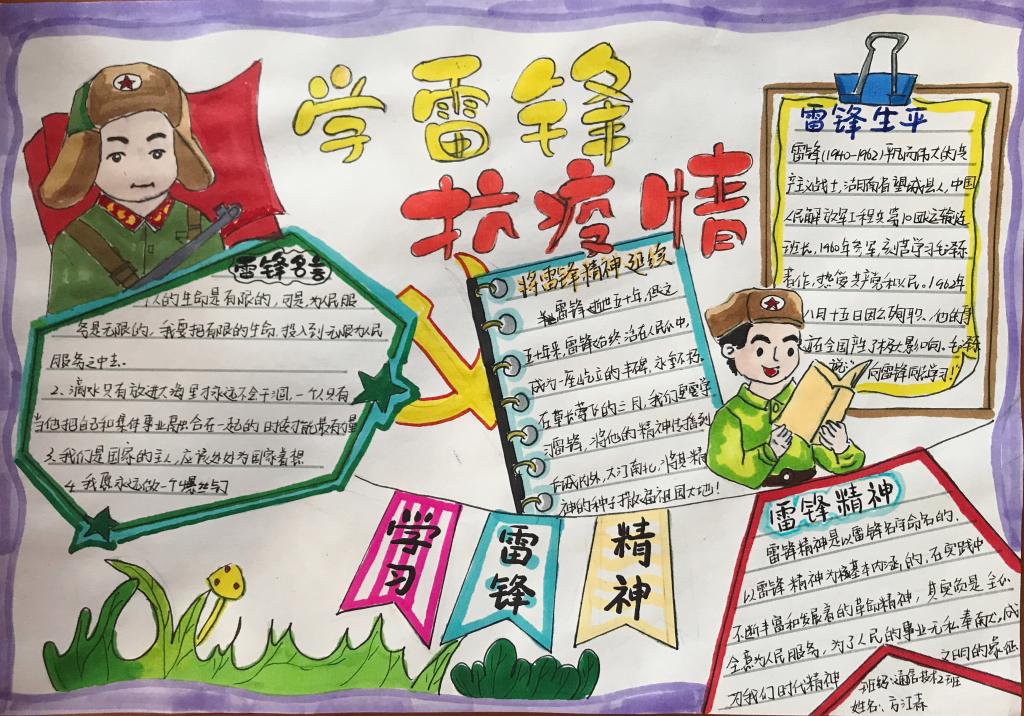 学雷锋
抗疫情
雷锋生平
雷锋(1940-1962)平凡而伟大的共
产主义战士,湖南省望城县人,中国
人民解放军工程兵第10团运输连
班长,1960年参军,刻苦学习毛泽东
著作,热爱共产党和人民。1962年
八月十五日因公殉职。他的事
在全国产了极大影响。毛泽东
说:向雷锋同志学习!
雷锋名言
人的生命是有限的,可是为人民服
务是无限的,我要把有限的生命,投入到无限为人民
服务之中去.
2、滴水只有放进大海里才永远不会干涸,一个人只有
当他把自己和集体事业融合在一起的时候才能最有力量
3、我们是国家的主人,应该处处为国家着想
4、我愿永远做一个螺丝钉
将雷锋精神延续
雷锋逝世五十年,但这
五十年来,雷锋始终活在人民心中,
成为一座屹立的丰碑,永垂不朽.
在草长莺飞的三月,我们更要学
习雷锋,将他的精神传播到
长城内外,大江南北,将其精
神的种子撒遍祖国大地!
学习
雷锋
精神
雷锋精神
雷锋精神是以雷锋名字命名的、
以雷锋精神为基本内涵的、在实践中
不断丰富和发展着的革命精神,其实质是全心
全意为人民服务,为了人民的事业无私奉献,成
为我们时代精神
之明的象征
班级:通信技术2班
姓名:方江森